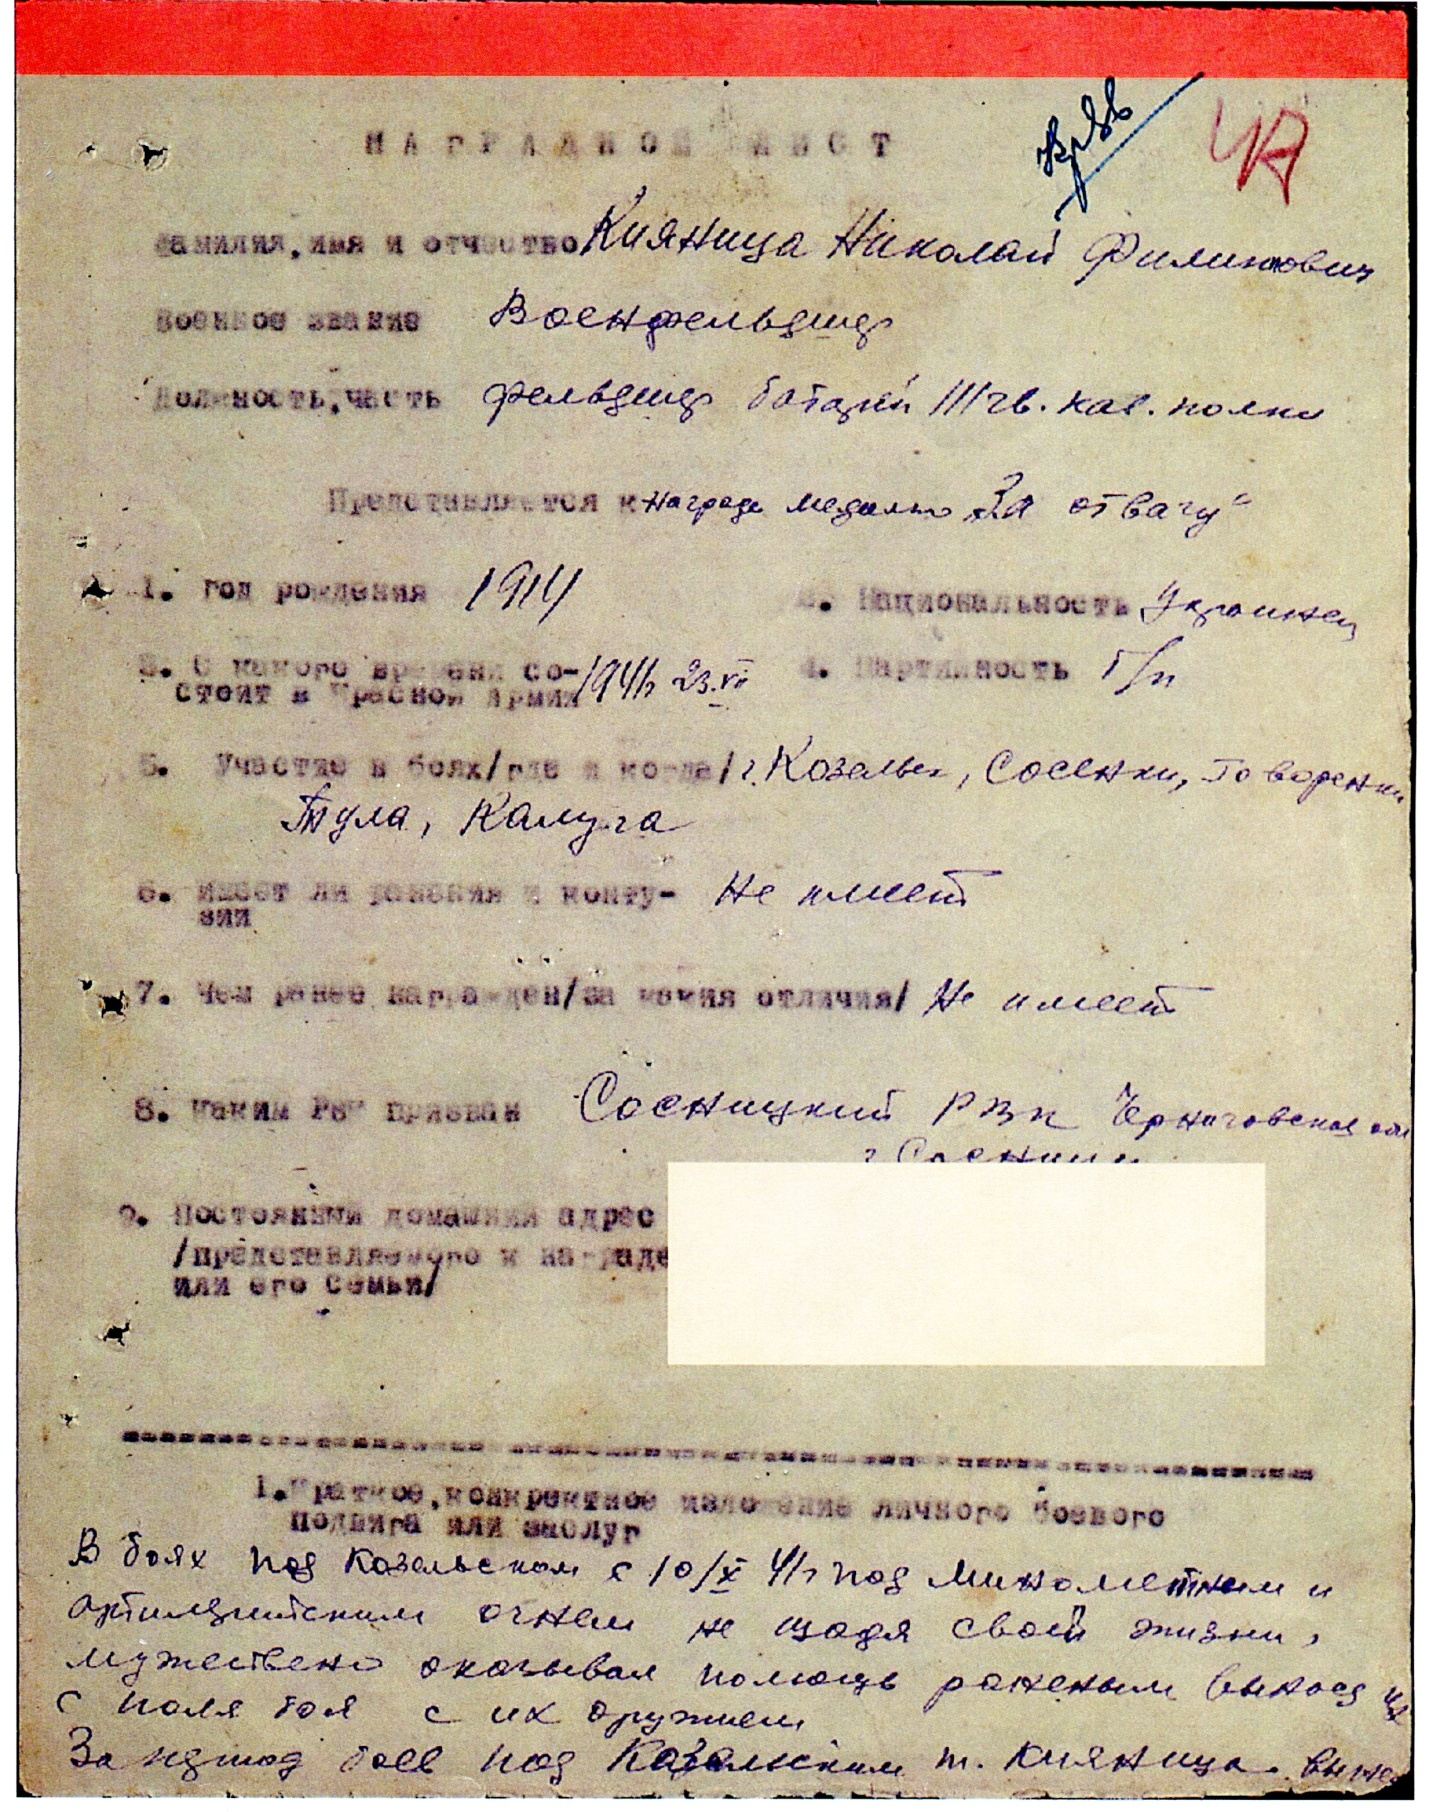 НАГРАДНОЙ ЛИСТ
Фамилия, имя и отчество Кияница Николай Филиппович
Военное звание Военфельдшер
Должность, часть фельдшер батареи III гв. кав. полка
Представляется к награде медалью "За отвагу"
1. Год рождения 1914 2. Национальность Украинец
3. С какого времени со- 1941г 23.VI 4. Партийность б/п
стоит в Красной Армии
5. Участие в боях/где и когда/ г. Козельск, Сосенки, Говоренки
Тула, Калуга
6. Имеет ли ранения и конту- Не имеет
зии
7. Чем ранее награжден/за какия отличия/ Не имеет
8. Каким РВК призван Сосницкий РВК Черниговской обл
г Сосница
9. Постоянный домашний адрес
/представляемого к награде
или его семьи/
1. Краткое, конкретное изложение личного боевого
подвига или заслуг
В боях под Козельском с 10/X 41г под минометным и
артиллерийским огнем не щадя своей жизни,
мужествено оказывал помощь раненым вынося их
с поля боя с их оружием
За период боев под Козельском т. Кияница